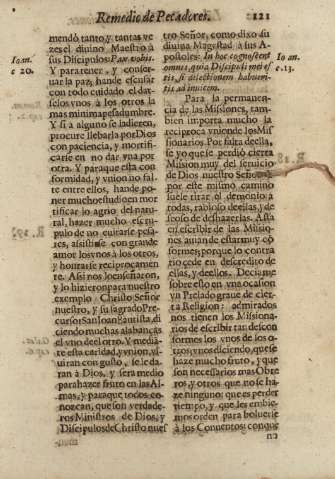 Remedio de Pecadores. 121
mendó tanto, y tantas ve-
zes el diuino Maestro à
sus Discipulos: Pax vobis.
Y para tener, y conser-
uar la paz, hande escusar
con todo cuidado el dar-
selos vnos à los otros la
mas minima pesadumbre.
Y si a alguno se la dieren,
procure llebarla por Dios
con paciencia, y mortifi-
carse en no dar vna por
otra. Y para que esta con
formidad, y vnion no fal-
te entre ellos, hande po-
ner mucho estudio en mor
tificar lo agrio del natu-
ral, hazer mucho escru-
pulo de no quitarse pesa-
res, asistirse con grande
amor los vnos à los otros,
y honrarse reciprocamen
te. Asi nos lo enseñaron,
y lo hizieron para nuestro
exemplo Christo Señor
nuestro, y su sagrado Pre-
cursor San Ioan Bautista, di
ciendo muchas alabanças
el vno del otro. Y median
te esta caridad, y vnion, vi-
uiran con gusto, se le da-
ran à Dios, y sera medio
para hazer fruto en las Al-
mas, y para que todos co-
nozcan, que son verdade-
ros Ministros de Dios, y
Discipulos de Christo nues
Ioan.
c 20.
tro Señor, como dixo su
diuina Magestad à sus A-
postoles: In hoc cognoscent
omnes, quia Discipuli mei es
tis, si dilectionem habueri-
tis ad inuicem.
Para la permanen-
cia de las Misiones, tam-
bien importa mucho la
reciproca vnion de los Mis
sionarios. Por falta de ella,
se yo que se perdió cierta
Mision muy del seruicio
de Dios nuestro Señor, y
por este mismo camino
suele tirar el demonio à
todas, rabioso de ellas, y de
seoso de deshazerlas. Asta
en escribir de las Misio-
nes auian de estar muy cō
formes; porque lo contra
rio cede en descredito de
ellas, y de ellos. Deciame
sobre esto en vna ocasion
vn Prelado graue de cier-
ta Religion: admirados
nos tienen los Misiona-
rios de escribir tan descon
formes los vnos de los o-
tros; vnos diciendo, que se
haze mucho fruto, y que
son necessarios mas Obre
ros, y otros que no se ha-
ze ninguno: que es perder
tiempo, y que les embie-
mos orden para boluerse
à los Conuentos: con que
no
Io an.
c.13.